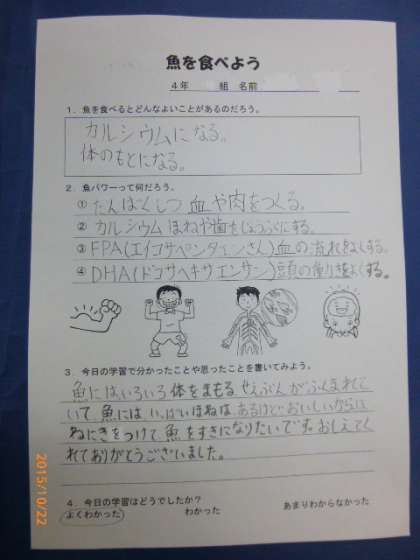 魚を食べよう
4年 組 名前
1．魚を食べるとどんなよいことがあるのだろう。
カルシウムになる。
体のもとになる。
2．魚パワーって何だろう。
① たんぱくしつ 血や肉をつくる。
② カルシウム ほねや歯をじょうぶにする。
③ EPA(エイコサペンタエンさん)血の流れをよくする。
④ DHA(ドコサヘキサエンサン)頭の働きをよくする。
3．今日の学習で分かったことや思ったことを書いてみよう。
魚にはいろいろ体をまもるせえぶんがふくまれて
いて魚にはいっぱいほねはあるけどおいしいからほ
ねにきをつけて魚をすきになりたいです。おしえてく
れてありがとうございました。
4．今日の学習はどうでしたか？
よくわかった わかった あまりわからなかった
2015/10/22